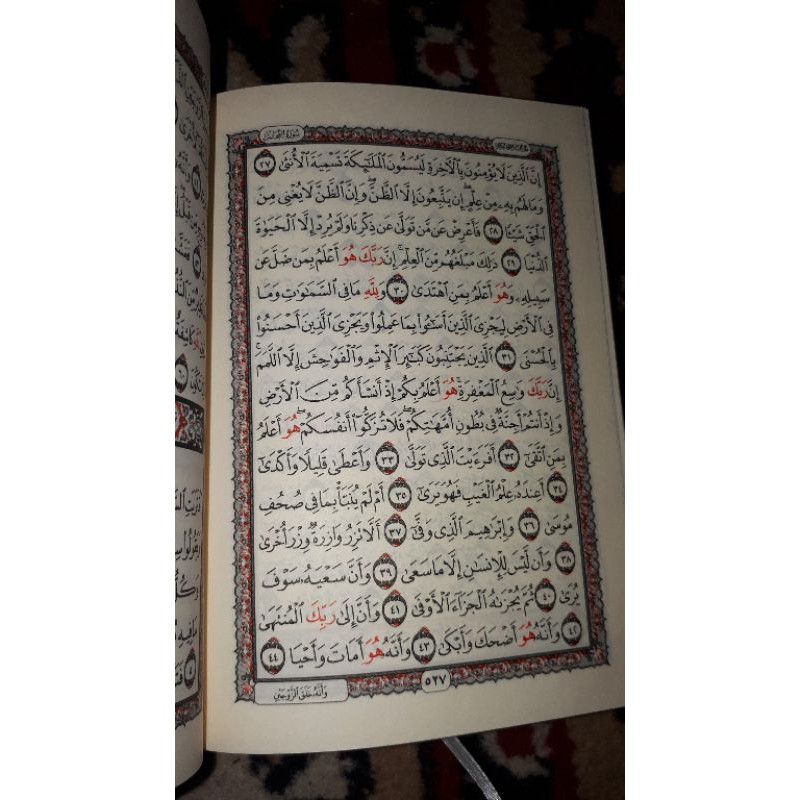 سورة النجم
إِنَّ ٱلَّذِينَ لَا يُؤْمِنُونَ بِٱلْآخِرَةِ لَيُسَمُّونَ ٱلْمَلَٰٓئِكَةَ تَسْمِيَةَ ٱلْأُنثَىٰ ٢٧
وَمَا لَهُم بِهِۦ مِنْ عِلْمٍ إِن يَتَّبِعُونَ إِلَّا ٱلظَّنَّ وَإِنَّ ٱلظَّنَّ لَا يُغْنِى مِنَ
ٱلْحَقِّ شَيْـًٔا ٢٨ فَأَعْرِضْ عَن مَّن تَوَلَّىٰ عَن ذِكْرِنَا وَلَمْ يُرِدْ إِلَّا ٱلْحَيَوٰةَ
ٱلدُّنْيَا ٢٩ ذَٰلِكَ مَبْلَغُهُم مِّنَ ٱلْعِلْمِ إِنَّ رَبَّكَ هُوَ أَعْلَمُ بِمَن ضَلَّ عَن
سَبِيلِهِۦ وَهُوَ أَعْلَمُ بِمَنِ ٱهْتَدَىٰ ٣٠ وَلِلَّهِ مَا فِى ٱلسَّمَٰوَٰتِ وَمَا
فِى ٱلْأَرْضِ لِيَجْزِىَ ٱلَّذِينَ أَسَٰٓـُٔوا۟ بِمَا عَمِلُوا۟ وَيَجْزِىَ ٱلَّذِينَ أَحْسَنُوا۟
بِٱلْحُسْنَى ٣١ ٱلَّذِينَ يَجْتَنِبُونَ كَبَٰٓئِرَ ٱلْإِثْمِ وَٱلْفَوَٰحِشَ إِلَّا ٱللَّمَمَ
إِنَّ رَبَّكَ وَٰسِعُ ٱلْمَغْفِرَةِ هُوَ أَعْلَمُ بِكُمْ إِذْ أَنشَأَكُم مِّنَ ٱلْأَرْضِ
وَإِذْ أَنتُمْ أَجِنَّةٌ فِى بُطُونِ أُمَّهَٰتِكُمْ فَلَا تُزَكُّوٓا۟ أَنفُسَكُمْ هُوَ أَعْلَمُ
بِمَنِ ٱتَّقَىٰٓ ٣٢ أَفَرَءَيْتَ ٱلَّذِى تَوَلَّىٰ ٣٣ وَأَعْطَىٰ قَلِيلًا وَأَكْدَىٰٓ
٣٤ أَعِندَهُۥ عِلْمُ ٱلْغَيْبِ فَهُوَ يَرَىٰٓ ٣٥ أَمْ لَمْ يُنَبَّأْ بِمَا فِى صُحُفِ
مُوسَىٰ ٣٦ وَإِبْرَٰهِيمَ ٱلَّذِى وَفَّىٰٓ ٣٧ أَلَّا تَزِرُ وَازِرَةٌ وِزْرَ أُخْرَىٰ
٣٨ وَأَن لَّيْسَ لِلْإِنسَٰنِ إِلَّا مَا سَعَىٰ ٣٩ وَأَنَّ سَعْيَهُۥ سَوْفَ
يُرَىٰ ٤٠ ثُمَّ يُجْزَىٰهُ ٱلْجَزَآءَ ٱلْأَوْفَىٰ ٤١ وَأَنَّ إِلَىٰ رَبِّكَ ٱلْمُنتَهَىٰ
٤٢ وَأَنَّهُۥ هُوَ أَضْحَكَ وَأَبْكَىٰ ٤٣ وَأَنَّهُۥ هُوَ أَمَاتَ وَأَحْيَا ٤٤
٥٢٧
وَأَنَّهُ خَلَقَ ٱلزَّوْجَيْنِ